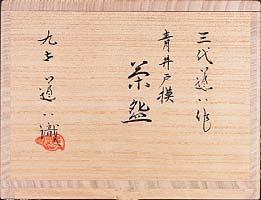 三代道八作
青井戸模
茶盌
九十道八識